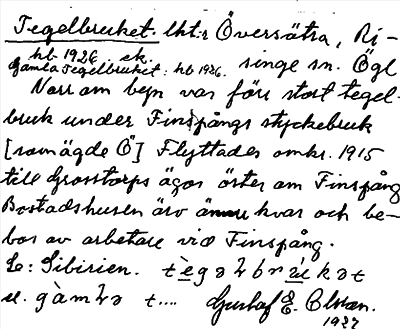 Tegelbruket. lht: Översätra, Ri-
hb 1926 ek.
Gamla Tegelbruket: hb 1926. singe sn. Ögl
Norr om byn var förr stort tegel-
bruk under Finspångs styckebruk
[som ägde Ö] Flyttades omkr. 1915
till Grosstorps ägor öster om Finspång
Bostadshusen äro ännu kvar och be-
bos av arbetare vid Finspång.
Le: Sibirien.
Gustaf E. Olsson.
1937